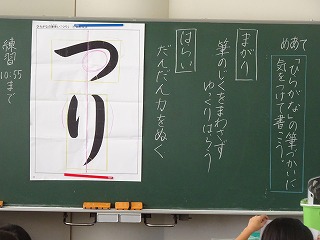 めあて
「ひらがな」の筆づかいに
気をつけて書こう。
まがり
筆のじくをまわさず
ゆっくりはらう
はらい
だんだん力をぬく
つり
練習
10:55
まで